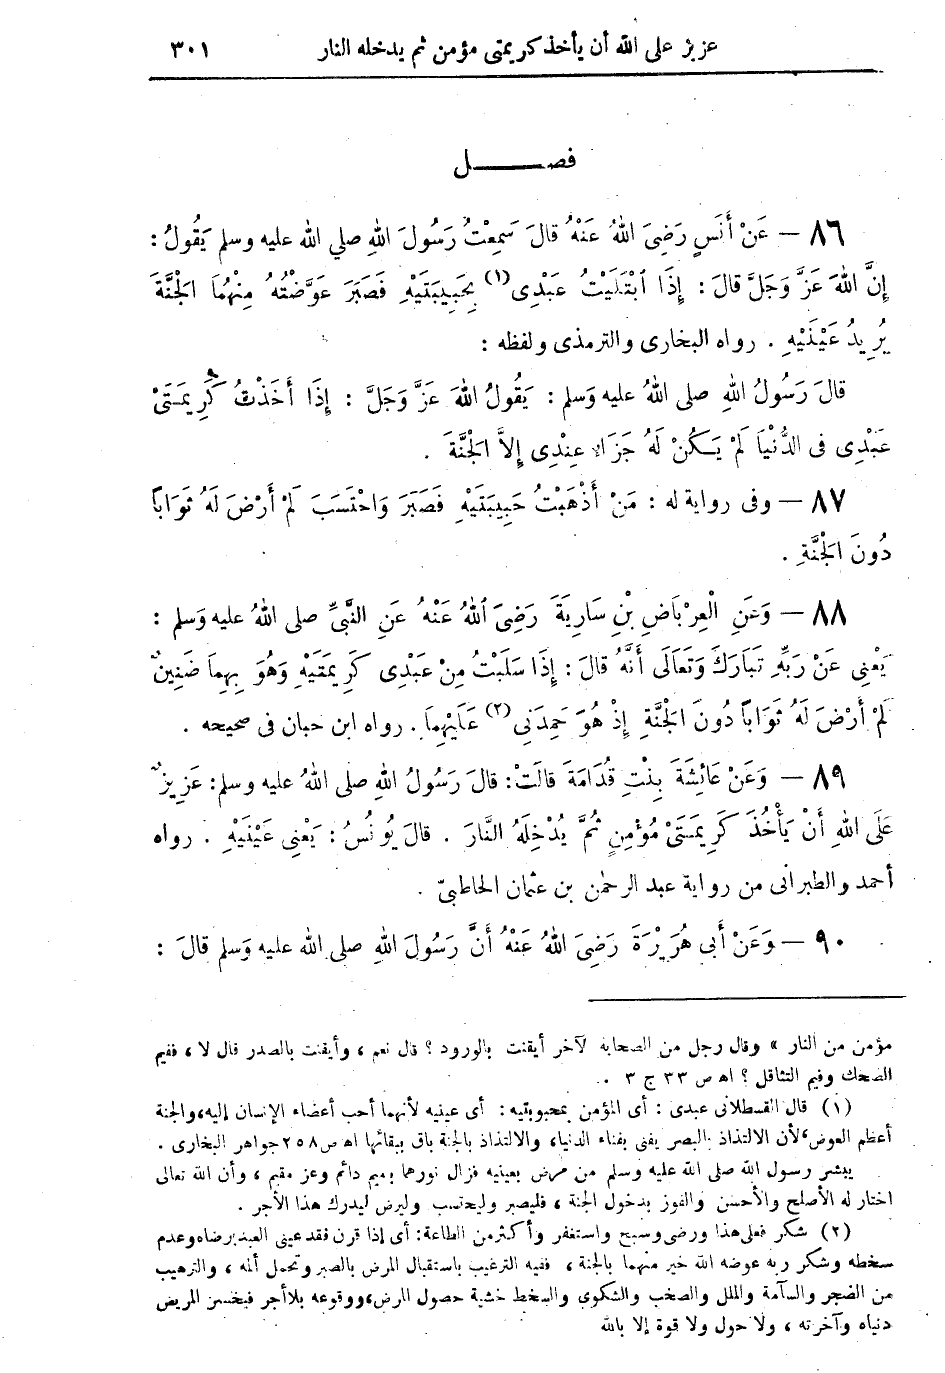 عزيز على الله أن يأخذ كريمتى مؤمن ثم يدخله النار ٣٠١
فصـــــل
٨٦ — عَنْ أَنَسٍ رَضِىَ اللهُ عَنْهُ قالَ سَمِعْتُ رَسُولَ اللهِ صلي الله عليه وسلم يَقُولُ :
إِنَّ اللهَ عَزَّ وَجَلَّ قالَ : إِذَا ابْتَلَيْتُ عَبْدِى(١) بِحَبِيبَتَيْهِ فَصَبَرَ عَوَّضْتُهُ مِنْهُمَا الْجَنَّةَ
يُرِيدُ عَيْنَيْهِ . رواه البخارى والترمذى ولفظه :
قالَ رَسُولُ اللهِ صلى اللهُ عليه وَسلم : يَقُولُ اللهَ عَزَّ وَجَلَّ : إِذَا أَخَذْتُ كَرِيمَتَىْ
عَبْدِى فى الدُّنْيَا لَمْ يَكُنْ لَهُ جَزَاءٌ عِنْدِى إِلاَّ الْجَنَّةَ .
٨٧ — وفى رواية له : مَنْ أَذْهَبْتُ حَبِيبَتَيْهِ فَصَبَرَ وَاحْتَسَبَ لَمْ أَرْضَ لَهُ ثَوَاباً
دُونَ الْجَنَّةِ .
٨٨ — وَعَنِ الْعِرْبَاضِ بْنِ سَارِيَةَ رَضِىَ اللهُ عَنْهُ عَنِ النَّبِىِّ صلى اللهُ عليه وَسلم :
يَعْنِى عَنْ رَبِّهِ تَبَارَكَ وَتَعَالَى أَنَّهُ قالَ : إِذَا سَلَبْتُ مِنْ عَبْدِى كَرِيمَتَيْهِ وَهُوَ بِهِمَا ضَنِينٌ
لَمْ أَرْضَ لَهُ ثَوَاباً دُونَ الْجَنَّةِ إِذْ هُوَ حَمِدَنِى(٢) عَلَيْهِمَا . رواه ابن حبان فى صحيحه .
٨٩ — وَعَنْ عَائِشَةَ بِنْتِ قُدَامَةَ قالَتْ : قالَ رَسُولُ اللهِ صلى اللهُ عليه وسلم : عَزِيزٌ
عَلَى اللهِ أَنْ يَأْخُذَ كَرِيمَتَىْ مُؤْمِنٍ ثُمَّ يُدْخِلَهُ النَّارَ . قالَ يُونُسُ : يَعْنِى عَيْنَيْهِ . رواه
أحمد والطبرانى من رواية عبد الرحمٰن بن عثمان الحاطبىّ .
٩٠ — وَعَنْ أَبِى هُرَيْرَةَ رَضِىَ اللهُ عَنْهُ أَنَّ رَسُولَ اللهِ صلى الله عليه وسلم قالَ :
مؤمن من النار » وقال رجل من الصحابة لآخر أيقنت بالورود ؟ قال نعم ، وأيقنت بالصدر قال لا ، ففيم
الضحك وفيم التثاقل ؟ اه ص ٣٣ ج ٣ .
(١) قال القسطلانى عبدى : أى المؤمن بمحبوبتيه : أى عينيه لأنهما أحب أعضاء الإنسان إليه، والجنة
أعظم العوض ؛ لأن الالتذاذ بالبصر يفنى بفناء الدنيا، والالتذاذ بالجنة باق ببقائها اه ص ٢٥٨ جواهر البخارى .
يبشر رسول الله صلى الله عليه وسلم من مرض بعينيه فزال نورهما بنعيم دائم وعز مقيم ، وأن الله تعالى
اختار له الأصلح والأحسن والفوز بدخول الجنة ، فليصبر وليحتسب وليرض ليدرك هذا الأجر .
(٢) شكر فعلى هذا ورضى وسبح واستغفر وأكثر من الطاعة : أى إذا قرن فقد عينى العبد رضاه وعدم
سخطه وشكر ربه عوضه الله خير منهما بالجنة ، ففيه الترغيب باستقبال المرض بالصبر وتحمل ألمه ، والترهيب
من الضجر والسآمة والملل والصخب والشكوى والسخط خشية حصول المرض، ووقوعه بلا أجر فيخسر المريض
دنياه وآخرته ، ولا حول ولا قوة إلا بالله